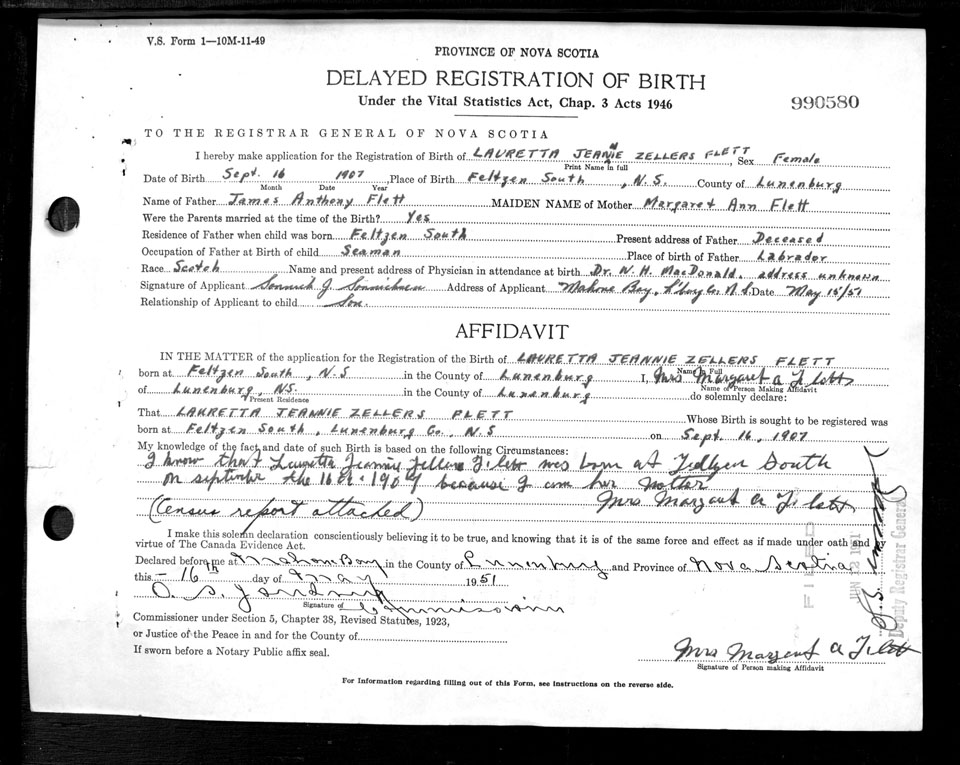 V.S. Form 1—10M-11-49
PROVINCE OF NOVA SCOTIA
DELAYED REGISTRATION OF BIRTH
Under the Vital Statistics Act, Chap. 3 Acts 1946
990580
TO THE REGISTRAR GENERAL OF NOVA SCOTIA
I hereby make application for the Registration of Birth of LAURETTA JEANNIE ZELLERS FLETT, Sex Female
Print Name in full
Date of Birth Sept. 16 1907, Place of Birth Feltzen South, N.S. County of Lunenburg
Month Date Year
Name of Father James Anthony Flett MAIDEN NAME of Mother Margaret Ann Flett
Were the Parents married at the time of the Birth? Yes
Residence of Father when child was born Feltzen South Present address of Father Deceased
Occupation of Father at Birth of child Seaman Place of birth of Father Labrador
Race Scotch Name and present address of Physician in attendance at birth Dr. W. H. MacDonald, address unknown
Signature of Applicant J. Address of Applicant Mahone Bay, L'burg Co. N.S. Date May 15/51
Relationship of Applicant to child Son
AFFIDAVIT
IN THE MATTER of the application for the Registration of the Birth of LAURETTA JEANNIE ZELLERS FLETT
Name in Full
born at Feltzen South, N.S in the County of Lunenburg I, Mrs Margaret A
Name of Person Making Affidavit
of Lunenburg, NS. in the County of Lunenburg do solemnly declare:
Present Residence
That LAURETTA JEANNIE ZELLERS FLETT Whose Birth is sought to be registered was
born at Feltzen South, Lunenburg Co., N.S on Sept. 16, 1907
My knowledge of the fact and date of such Birth is based on the following Circumstances:
I know that Lauretta Jeannie was born at South
on september the 16th 1907 because I am her Mother
(Census report attached) Mrs Margaret A
I make this solemn declaration conscientiously believing it to be true, and knowing that it is of the same force and effect as if made under oath and by
virtue of The Canada Evidence Act.
Declared before me at Mahone Bay in the County of Lunenburg and Province of Nova Scotia
this 16th day of May 1951
Signature of
Commissioner under Section 5, Chapter 38, Revised Statutes, 1923,
or Justice of the Peace in and for the County of
If sworn before a Notary Public affix seal.
Mrs Margaret A
Signature of Person making Affidavit
FILED
Deputy Registrar General
For Information regarding filling out of this Form, see instructions on the reverse side.